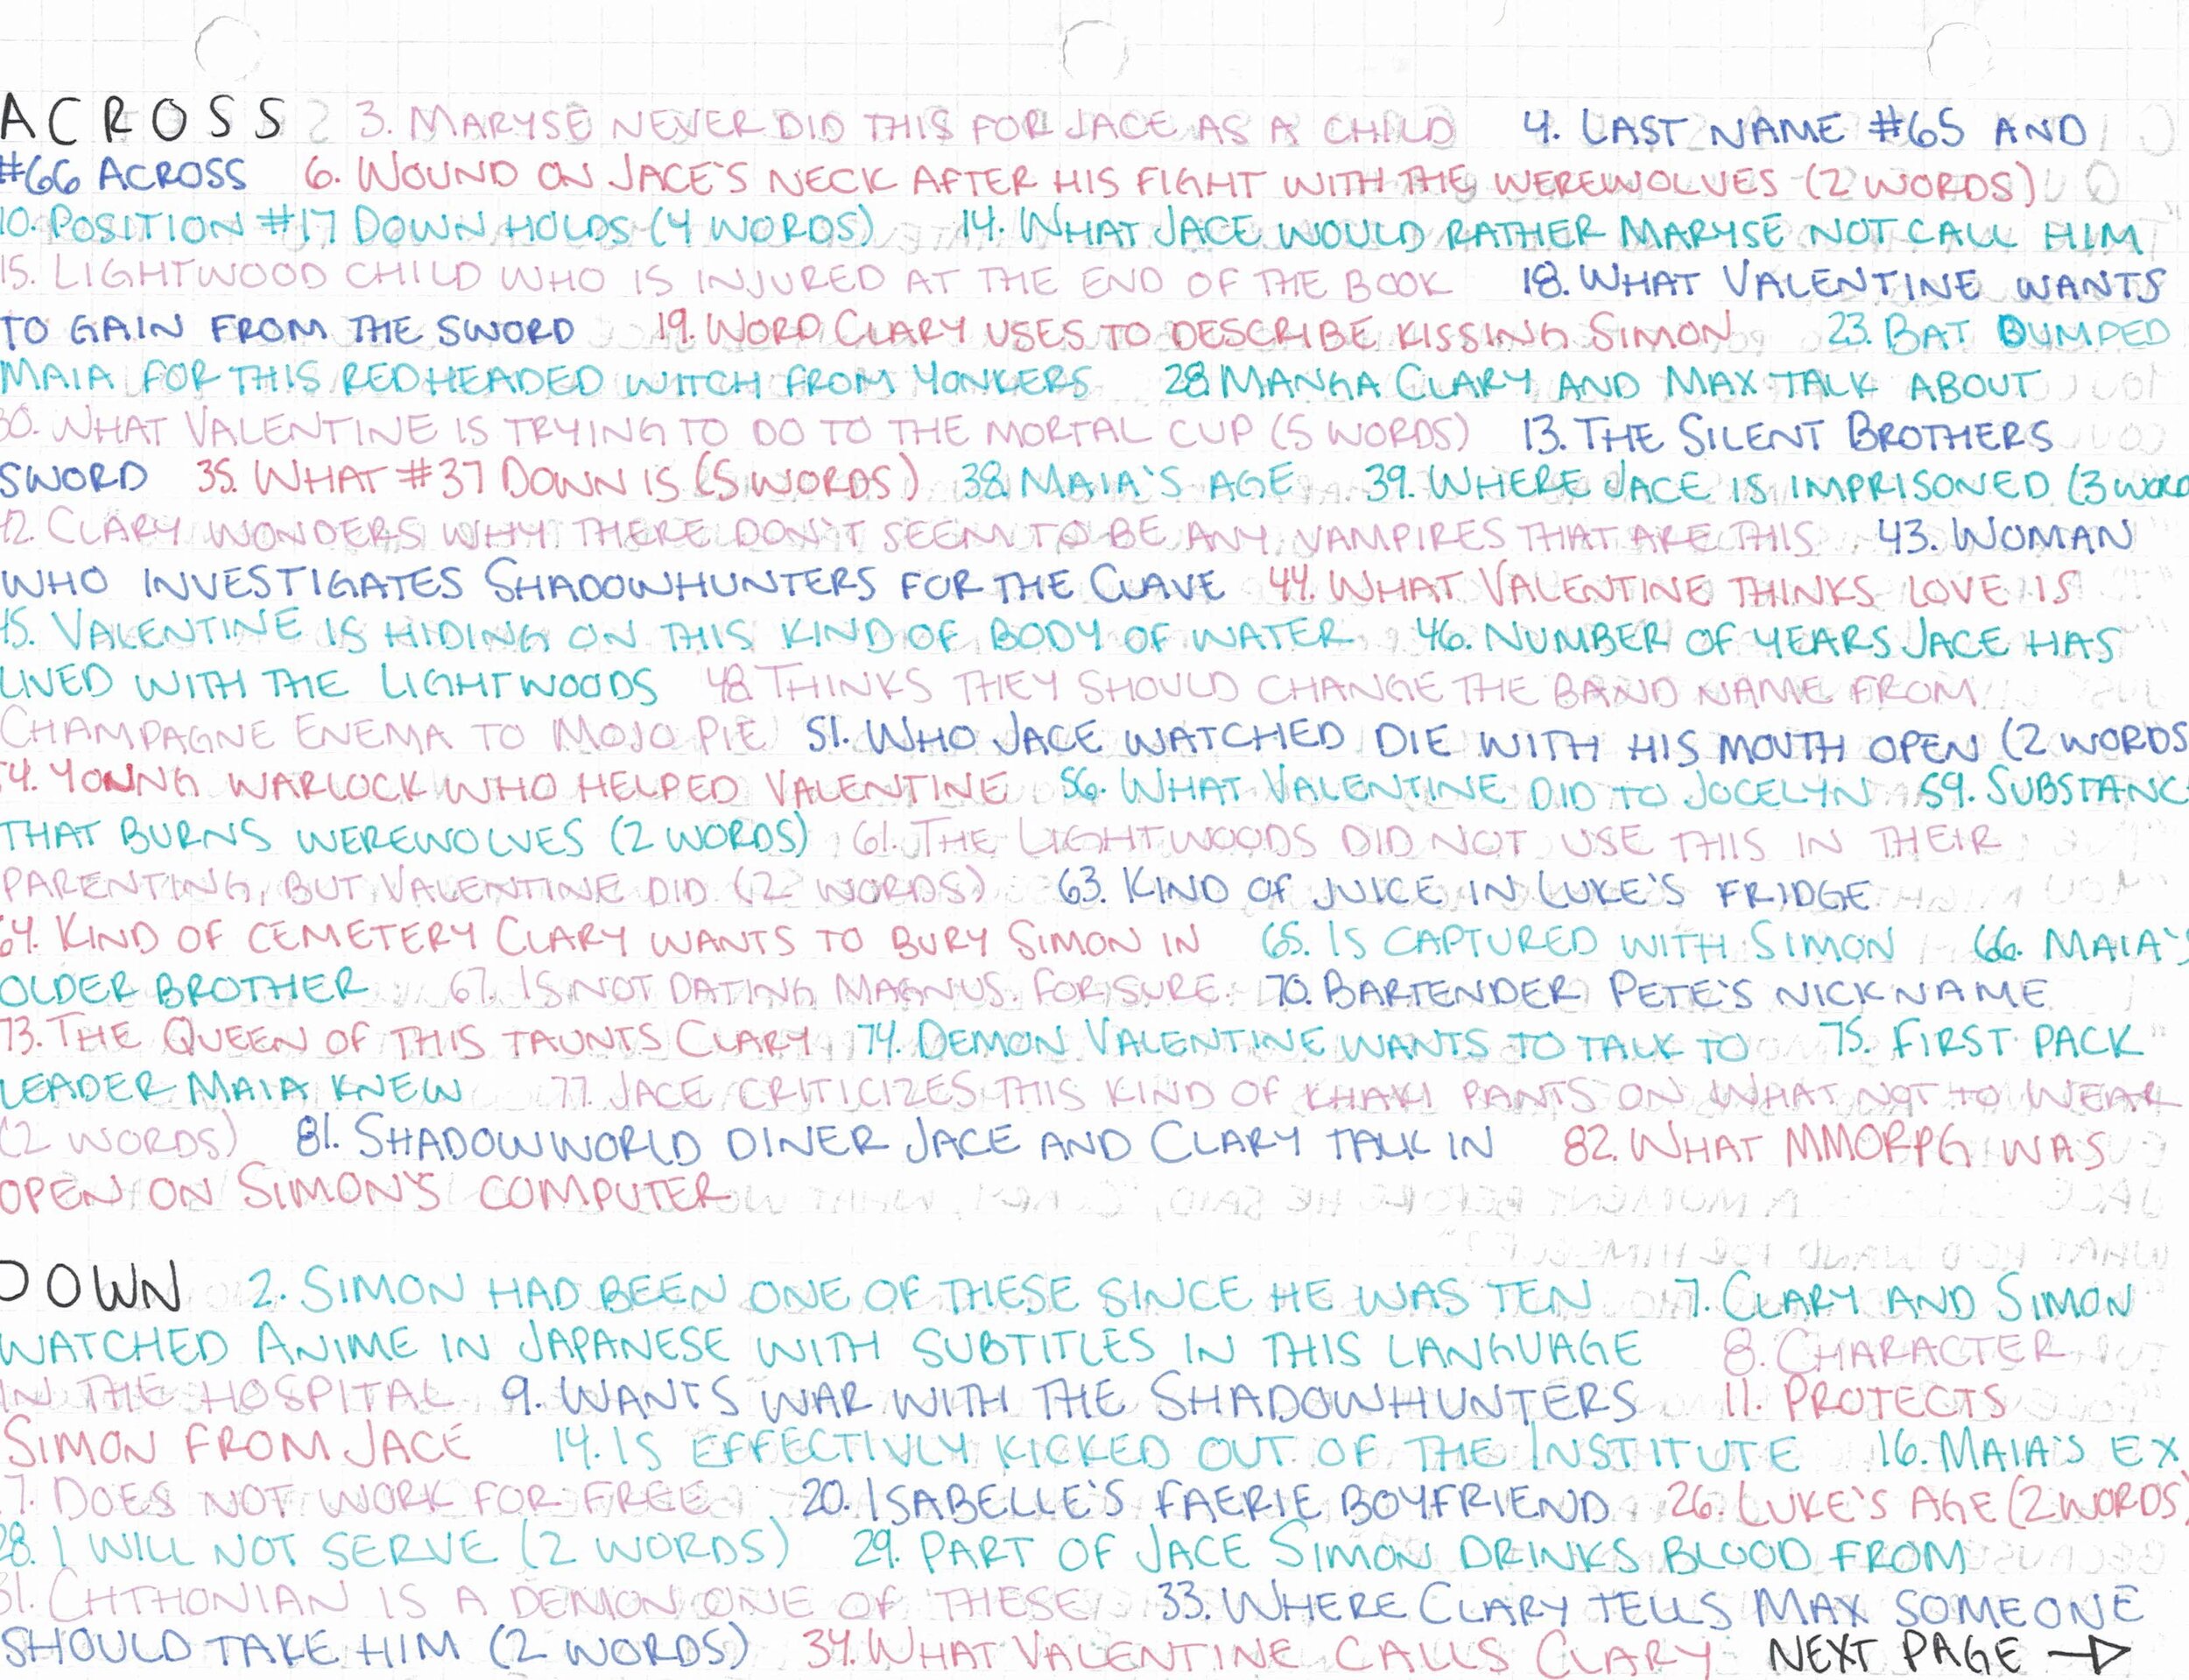 ACROSS 3. MARYSE NEVER DID THIS FOR JACE AS A CHILD 4. LAST NAME #65 AND
#66 ACROSS 6. WOUND ON JACE'S NECK AFTER HIS FIGHT WITH THE WEREWOLVES (2 WORDS)
10. POSITION #17 DOWN HOLDS (4 WORDS) 14. WHAT JACE WOULD RATHER MARYSE NOT CALL HIM
15. LIGHTWOOD CHILD WHO IS INJURED AT THE END OF THE BOOK 18. WHAT VALENTINE WANTS
TO GAIN FROM THE SWORD 19. WORD CLARY USES TO DESCRIBE KISSING SIMON 23. BAT DUMPED
MAIA FOR THIS REDHEADED WITCH FROM YONKERS 28 MANGA CLARY AND MAX TALK ABOUT
30. WHAT VALENTINE IS TRYING TO DO TO THE MORTAL CUP (5 WORDS) 13. THE SILENT BROTHERS
SWORD 35. WHAT #37 DOWN IS (5 WORDS) 38. MAIA'S AGE 39. WHERE JACE IS IMPRISONED (3 WORD
42. CLARY WONDERS WHY THERE DON'T SEEM TO BE ANY VAMPIRES THAT ARE THIS 43. WOMAN
WHO INVESTIGATES SHADOWHUNTERS FOR THE CLAVE 44. WHAT VALENTINE THINKS LOVE IS
45. VALENTINE IS HIDING ON THIS KIND OF BODY OF WATER 46. NUMBER OF YEARS JACE HAS
LIVED WITH THE LIGHTWOODS 48 THINKS THEY SHOULD CHANGE THE BAND NAME FROM
CHAMPAGNE ENEMA TO MOJO PIE 51. WHO JACE WATCHED DIE WITH HIS MOUTH OPEN (2 WORDS
54. YOUNG WARLOCK WHO HELPED VALENTINE 56. WHAT VALENTINE DID TO JOCELYN 59. SUBSTANC
THAT BURNS WEREWOLVES (2 WORDS) 61. THE LIGHTWOODS DID NOT USE THIS IN THEIR
PARENTING, BUT VALENTINE DID (2 WORDS) 63. KIND OF JUICE IN LUKE'S FRIDGE
64. KIND OF CEMETERY CLARY WANTS TO BURY SIMON IN 65. IS CAPTURED WITH SIMON 66. MAIA'S
OLDER BROTHER 67. IS NOT DATING MAGNUS. FOR SURE. 70. BARTENDER PETE'S NICKNAME
73. THE QUEEN OF THIS TAUNTS CLARY 74. DEMON VALENTINE WANTS TO TALK TO 75. FIRST PACK
LEADER MAIA KNEW 77. JACE CRITICIZES THIS KIND OF KHAKI PANTS ON WHAT NOT TO WEAR
(2 WORDS) 81. SHADOWWORLD DINER JACE AND CLARY TALK IN 82. WHAT MMORPG WAS
OPEN ON SIMON'S COMPUTER
DOWN 2. SIMON HAD BEEN ONE OF THESE SINCE HE WAS TEN 7. CLARY AND SIMON
WATCHED ANIME IN JAPANESE WITH SUBTITLES IN THIS LANGUAGE 8. CHARACTER
IN THE HOSPITAL 9. WANTS WAR WITH THE SHADOWHUNTERS 11. PROTECTS
SIMON FROM JACE 14. IS EFFECTIVLY KICKED OUT OF THE INSTITUTE 16. MAIA'S EX
17. DOES NOT WORK FOR FREE 20. ISABELLE'S FAERIE BOYFRIEND 26. LUKE'S AGE (2 WORDS)
28. I WILL NOT SERVE (2 WORDS) 29. PART OF JACE SIMON DRINKS BLOOD FROM
31. CHTHONIAN IS A DEMON ONE OF THESE 33. WHERE CLARY TELLS MAX SOMEONE
SHOULD TAKE HIM (2 WORDS) 34. WHAT VALENTINE CALLS CLARY NEXT PAGE →